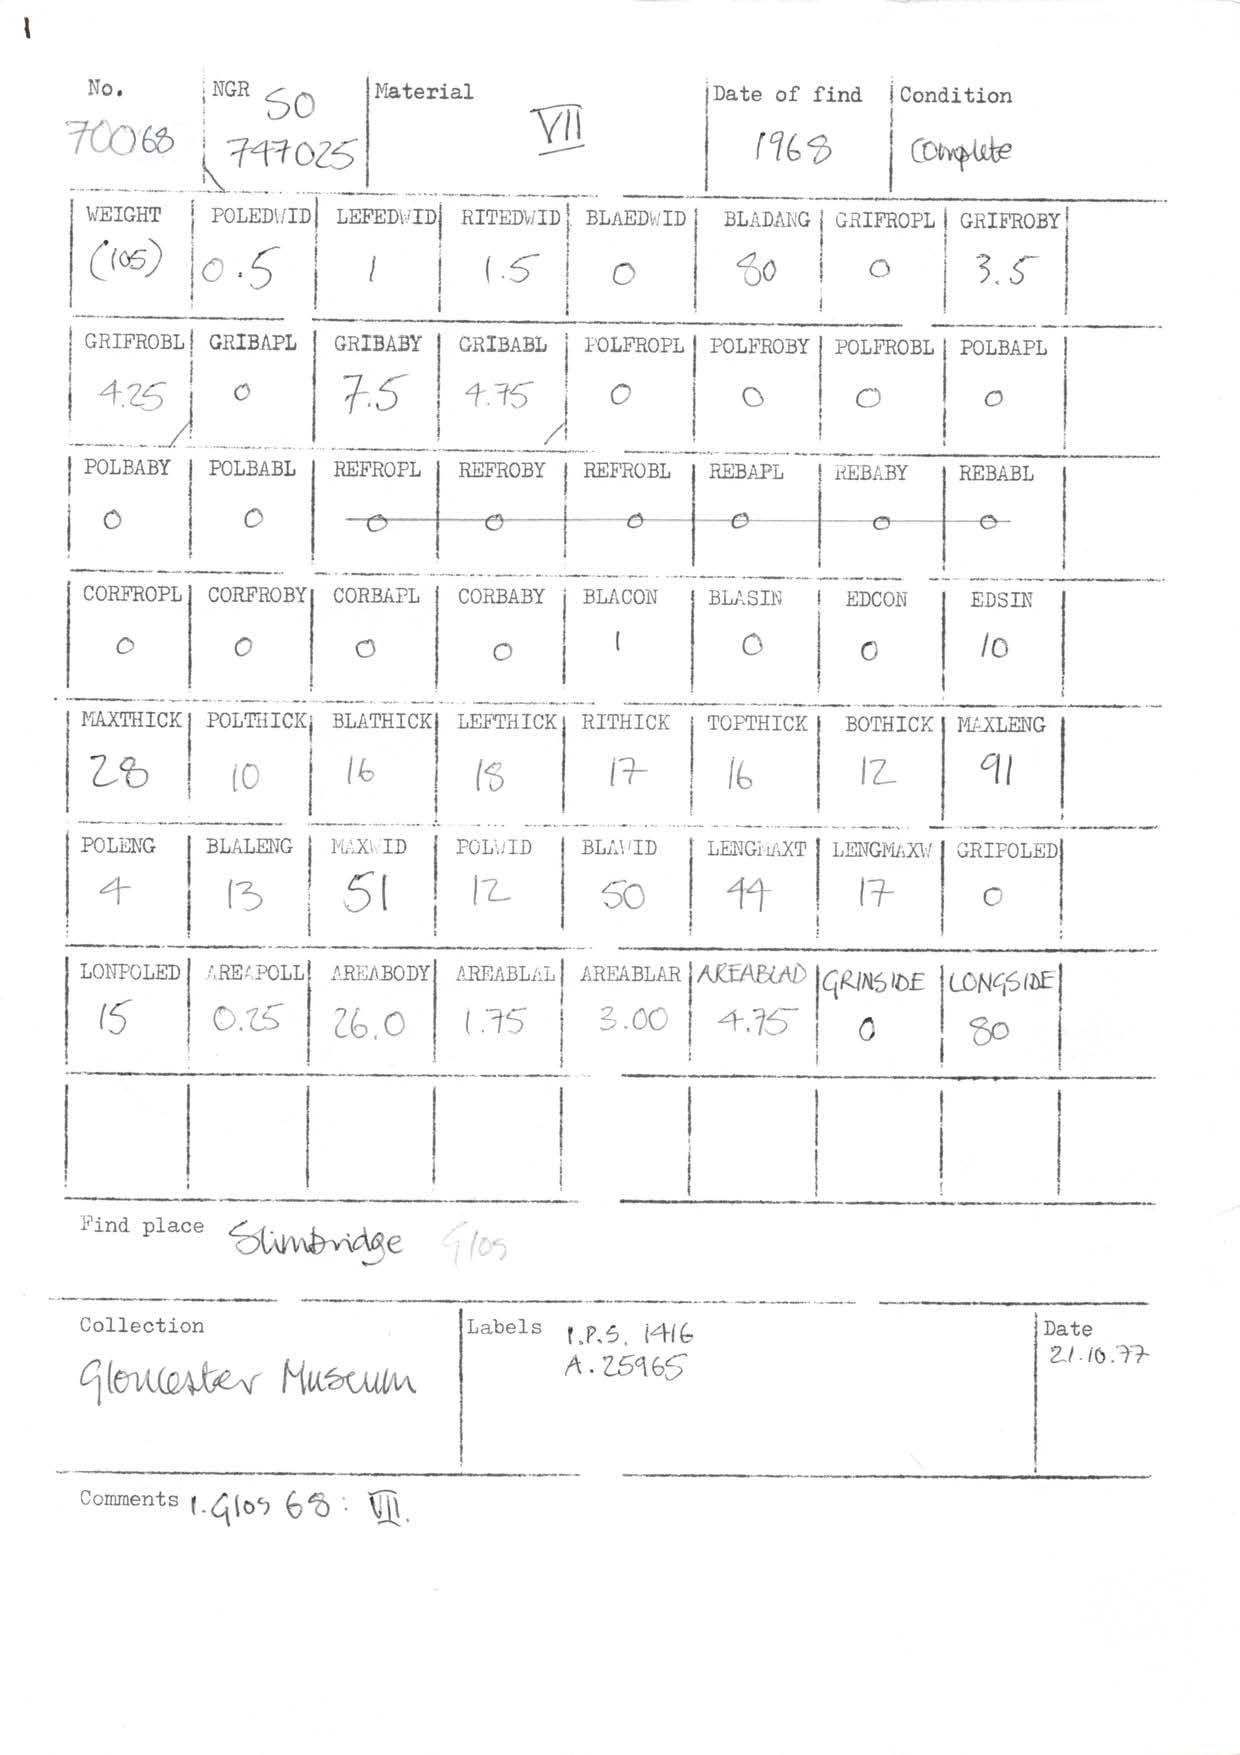 1
No. NGR SO Material VII Date of find Condition
70068 747025 1968 Complete
WEIGHT POLEDWID LEFEDWID RITEDWID BLAEDWID BLADANG GRIFROPL GRIFROBY
(105) 0.5 1 1.5 0 80 0 3.5
GRIFROBL GRIBAPL GRIBABY GRIBABL POLFROPL POLFROBY POLFROBL POLBAPL
4.25 0 7.5 4.75 0 0 0 0
POLBABY POLBABL REFROPL REFROBY REFROBL REBAPL REBABY REBABL
0 0 0 0 0 0 0 0
CORFROPL CORFROBY CORBAPL CORBABY BLACON BLASIN EDCON EDSIN
0 0 0 0 1 0 0 10
MAXTHICK POLTHICK BLATHICK LEFTHICK RITHICK TOPTHICK BOTHICK MAXLENG
28 10 16 18 17 16 12 91
POLENG BLALENG MAXWID POLWID BLAWID LENGMAXT LENGMAXW GRIPOLED
4 13 51 12 50 44 17 0
LONPOLED AREAPOLL AREABODY AREABLAL AREABLAR AREABLAD GRINSIDE LONGSIDE
15 0.25 26.0 1.75 3.00 4.75 0 80
Find place Slimbridge Glos
Collection Labels I.P.S. 1416 Date
Gloucester Museum A.25965 21.10.77
Comments 1. Glos 68: VII.